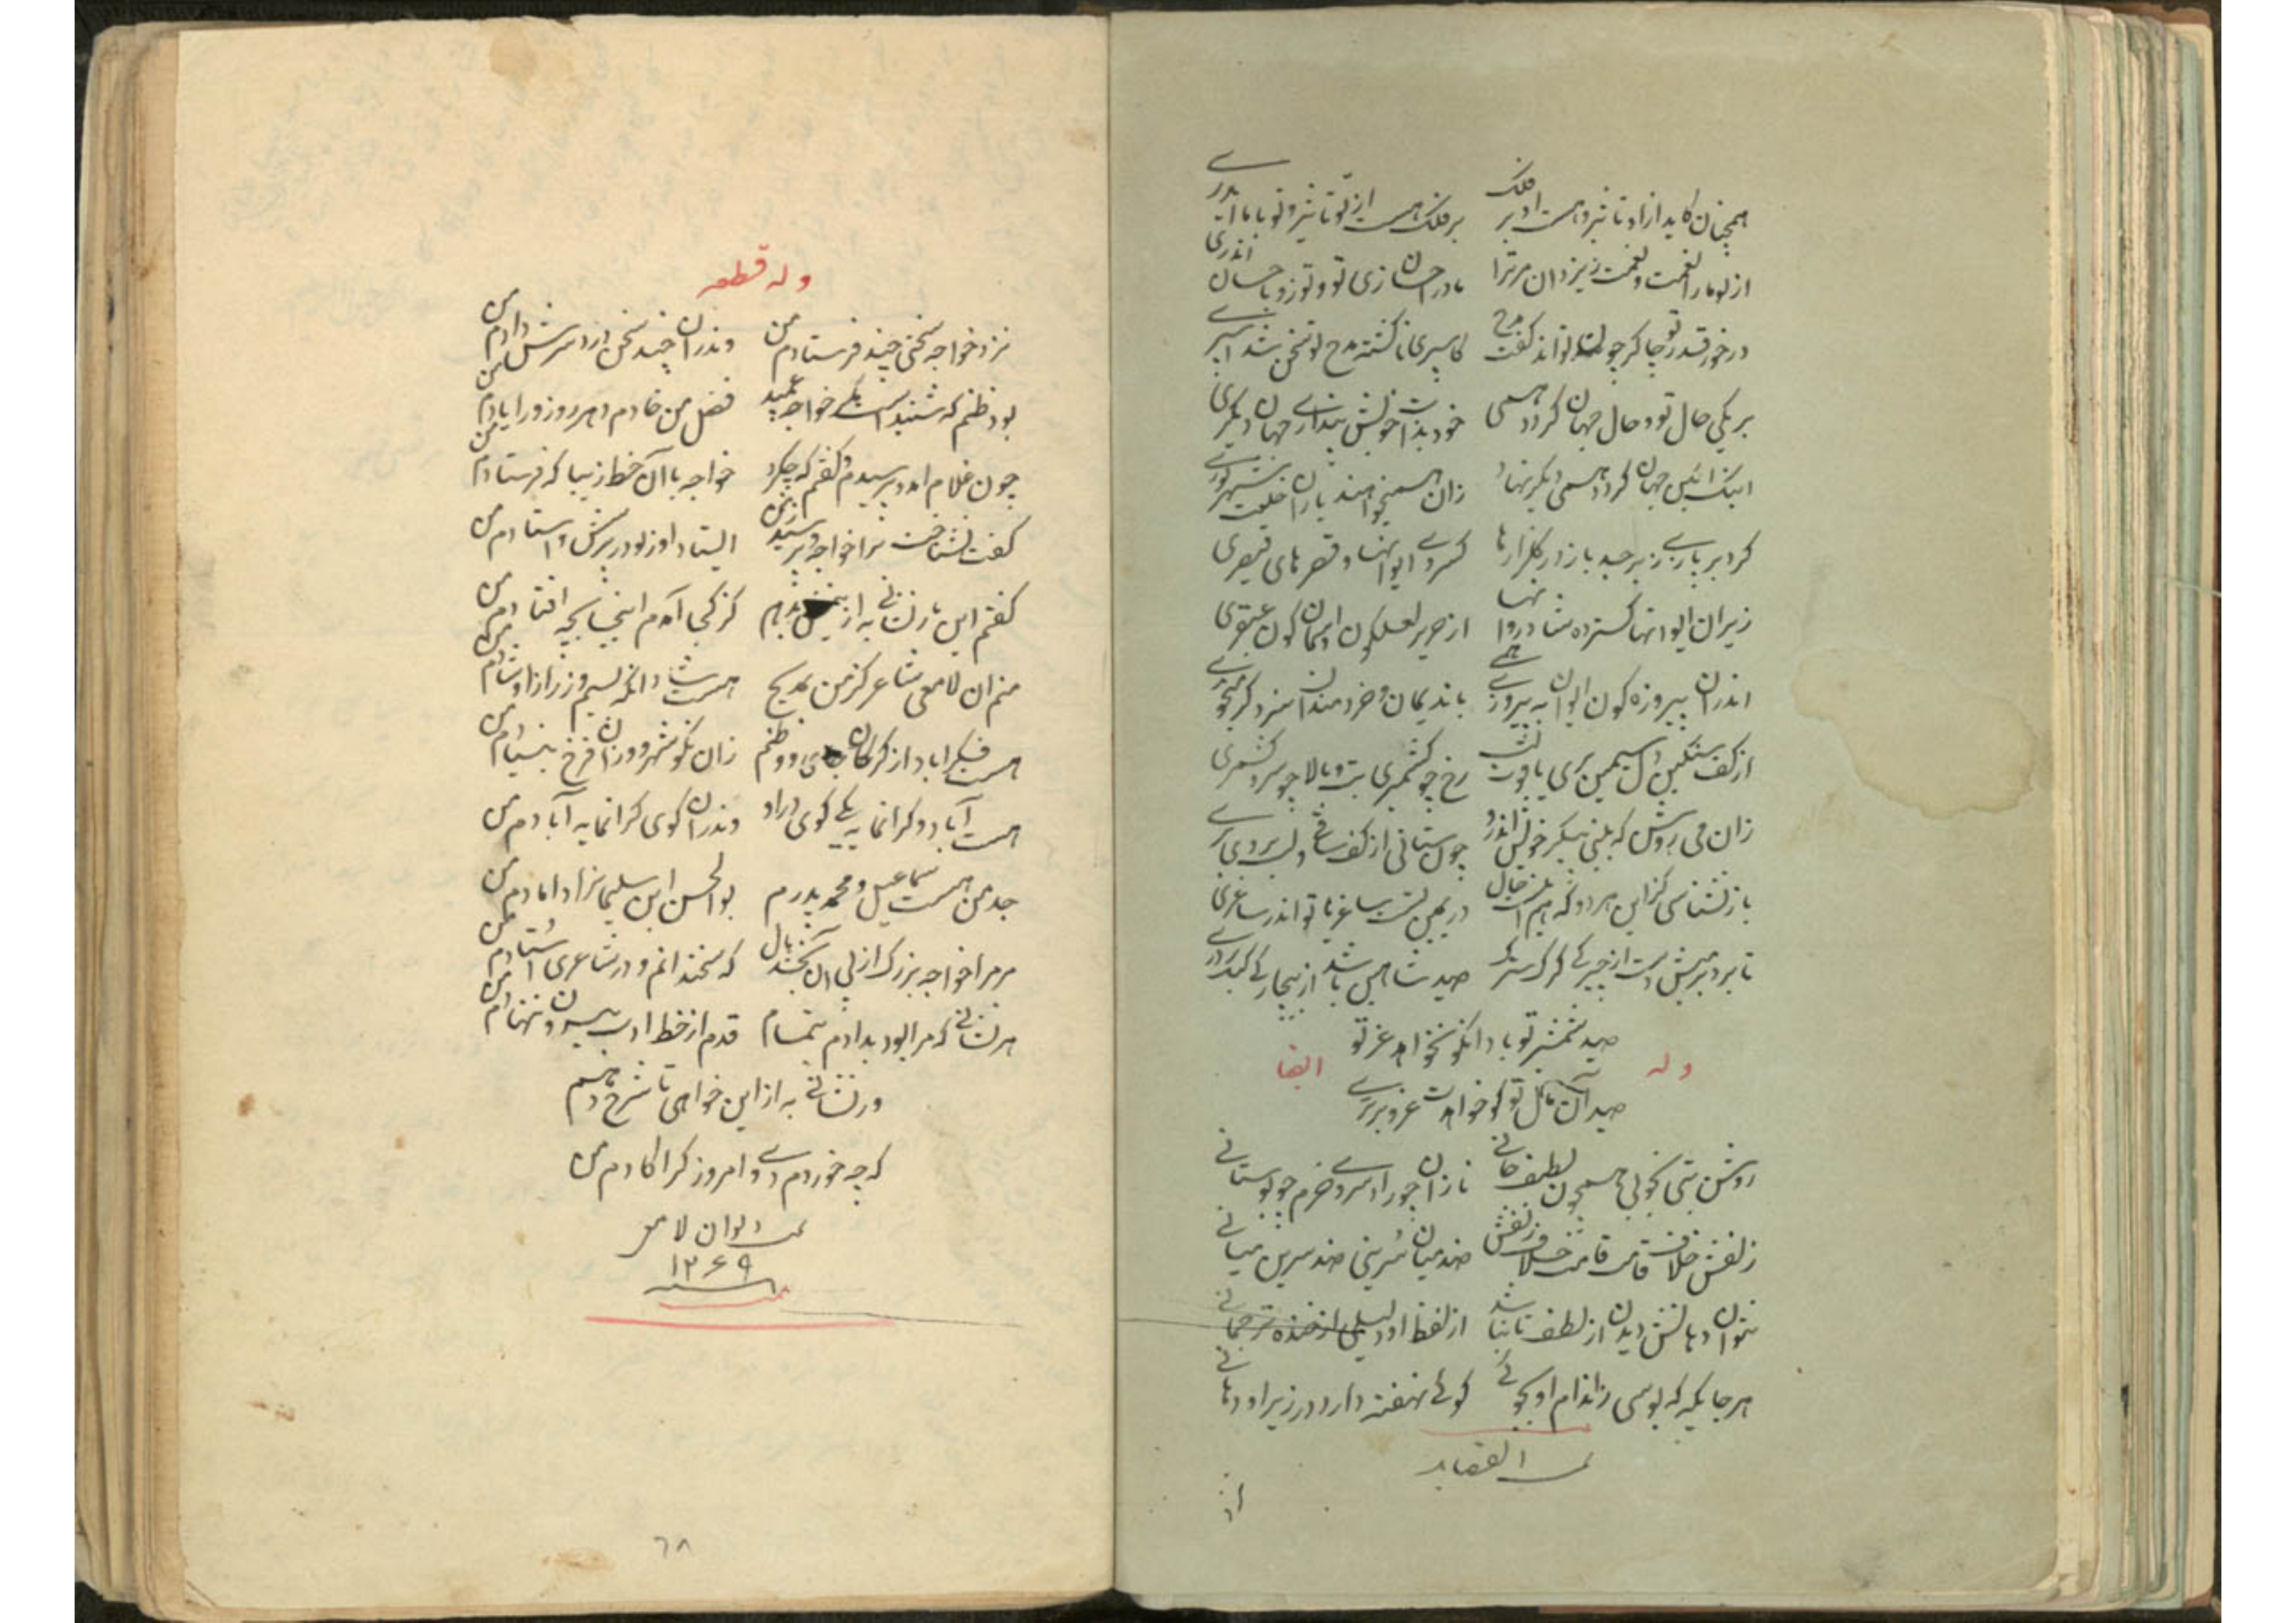 همچنان کاید ازاد تاثیر و هست او بر فلک    بر فلک هست از تو تاثیر و تو با ما اندری
از تو ما را نعمت و نعمت ز یزدان مر ترا    ما در احسان زی تو و تو زو باحسان اندری
در خور قدر تو چاکر چون تواند گفت مدح    کاسپری ناگشته مدح تو سخن شد اسپری
بر یکی حال تو و حال جهان گردد همی    خود بذات خویش پنداری جهان دیگری
اینک آئین جهان گردد همی دیگر نهاد    زان همیخواهند یاران خلعت شهریوری
کرد پر باری زبرجد باز در گلزارها    کسروی ایوانها و قصرهای قیصری
زیر ان ایوانها گسترده شادروانها    از حریر لعلگون و اسمان گون عبقری
اندر ان پیروزه گون ایوان به پیروزی همی    با ندیمان و خردمندان سزد گر میخوری
از کف سنگین دل سیمین بری یاقوت لب    رخ چو کشمیری بت و بالا چو سرو کشمری
زان می روشن که بینی پیکر خویش اندرو    چون ستانی از کف ساقی و لب بر وی بری
باز نشناسی کز این هر دو که هم است خیال    در یمین تست ساغر یا تو اندر ساغری
تا برد بر میش دست از چیرگی گرگ سترگ    صید شاهین باشد از بیچارگی کبک دری
صید شمشیر تو باد انکو نخواهد عز تو
وله    ایضا
صید آن مال تو کو خواهدت عز و برتری
روشن بتی نکوئی همچون لطیف خانی    نازان چو راد سروی خرم چو بوستانی
زلفش خلاف قامت قامت خلاف زلفش    ضد میان سرینی ضد سرین میانی
نتوان دهانش دیدن از لطف تا نباشد    از لفظ او دلیلی از خنده ترجمانی
هر جایگه که بوسی ز اندام او بجوئی    گوئی نهفته دارد در زیر او دهانی
تمت القصاید
وله قطعه
نزد خواجه سخنی چند فرستادم من    وندران چند سخن داد سرش دادم من
بود ظنم که شنیدست یکی خواجه عمید    فضل من خادم و هر روز ورا یادم من
چون غلام امد و پرسیدم و گفتم که چکرد    خواجه با آن خط زیبا که فرستادم من
گفت نشناخت ترا خواجه و پرسید ز من    ایستاد او ز تو در پرسش و استادم من
گفتم این بار نشانی به از این بدهم    کز کجا آمدم اینجا بچه افتادم من
منم ان لامعی شاعر کز من بمدیح    هست شاد انکه بسیم و زر ازاو شادم من
هست بکراباد از گرگان جای و وطنم    زان نکو شهر و وزان فرخ بنیادم من
هست آباد و گرانمایه یکی کوی دراو    وندران کوی گرانمایه آبادم من
جد من هست سماعیل و محمد پدرم    بوالحسن ابن سلیمانرا دامادم من
مر مرا خواجه بزرگ از پی ان کنجد بال    که سخندانم و در شاعری استادم من
هر نشانی که مرا بود بدادم بتمام    قدم از خط ادب بیرون ننهادم من
ور نشانی به از این خواهی تا شرح دهم
که چه خوردم دی و امروز کرا گادم من
تمت دیوان لامعی
۱۲۶۹
۶۸